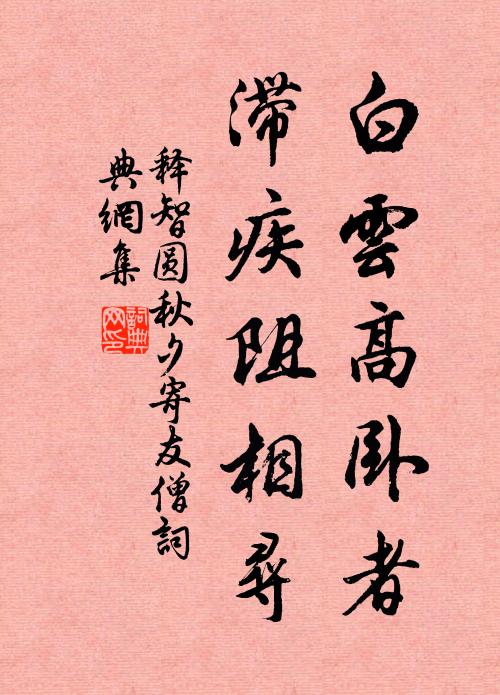 白雲高卧者
滞疾阻相尋
释智圆秋夕寄友僧詞
典網集
詞典網印